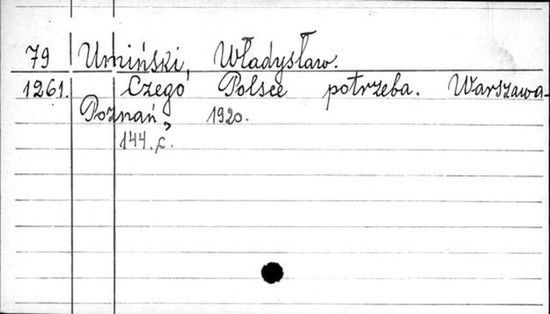 79 Umiński, Władysław.
1261. Czego Polsce potrzeba. Warszawa-
Poznań, 1920.
144. c.